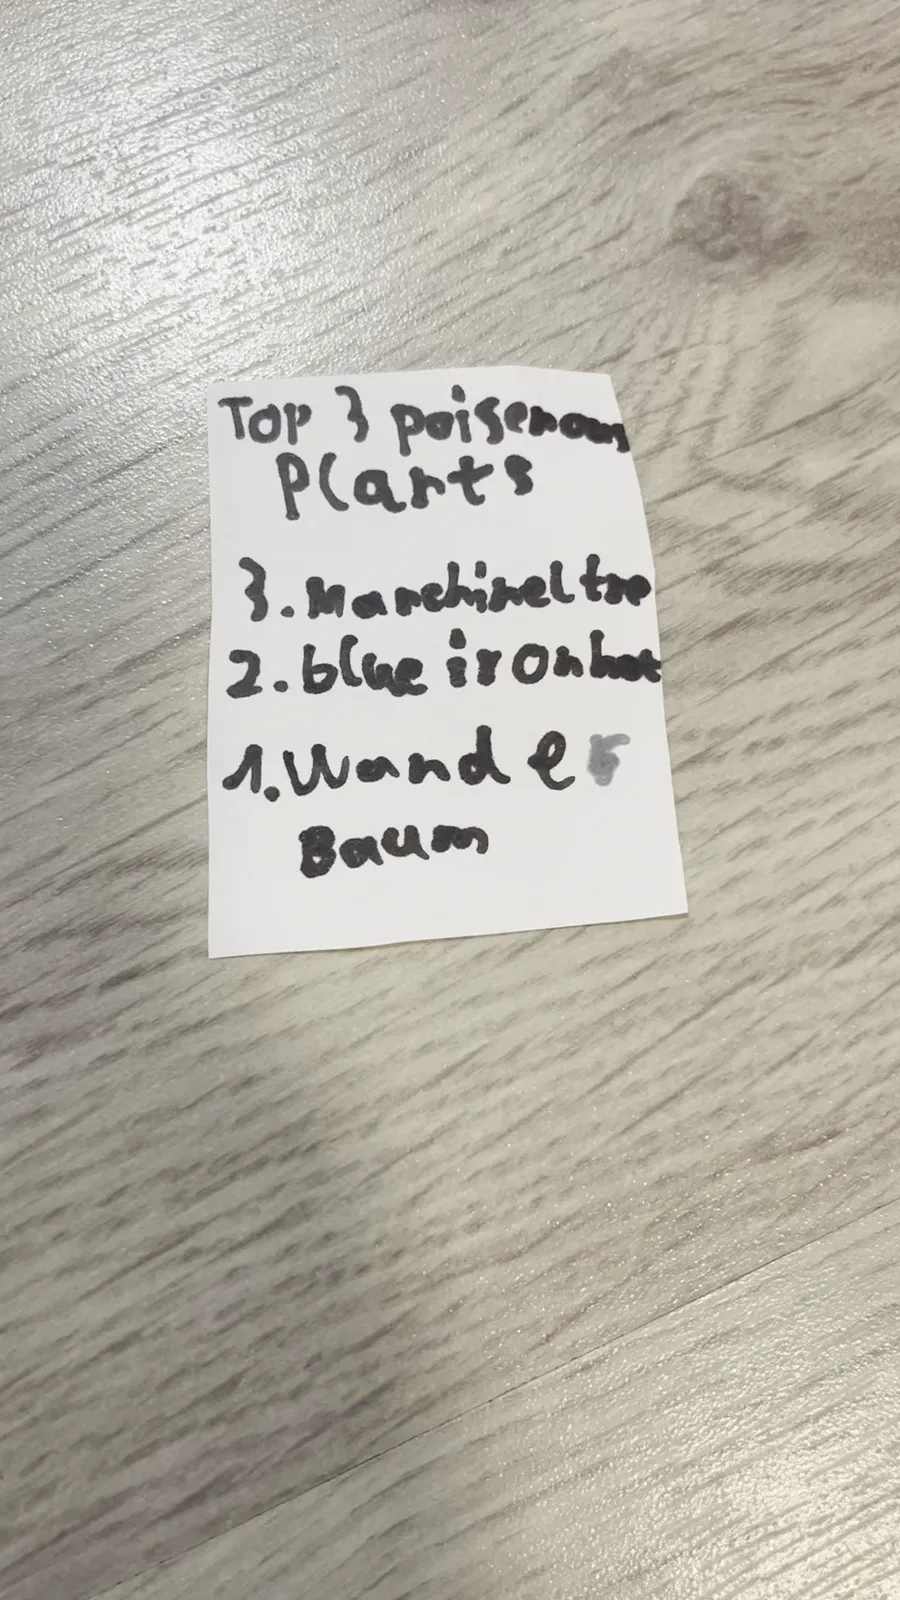 Top 3 poisenous
Plants
3. Manchineltre
2. blue ironhat
1. Wunde
Baum